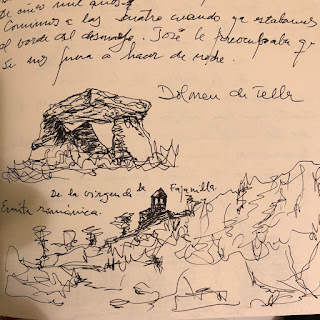 cinco mil años
Comimos a las cuatro cuando ya estábamos
al borde del desmayo. José le preocupaba que
se nos fuera a hacer de noche.
Dolmen de Tella
De la virgen de la Fajanilla.
Ermita románica.